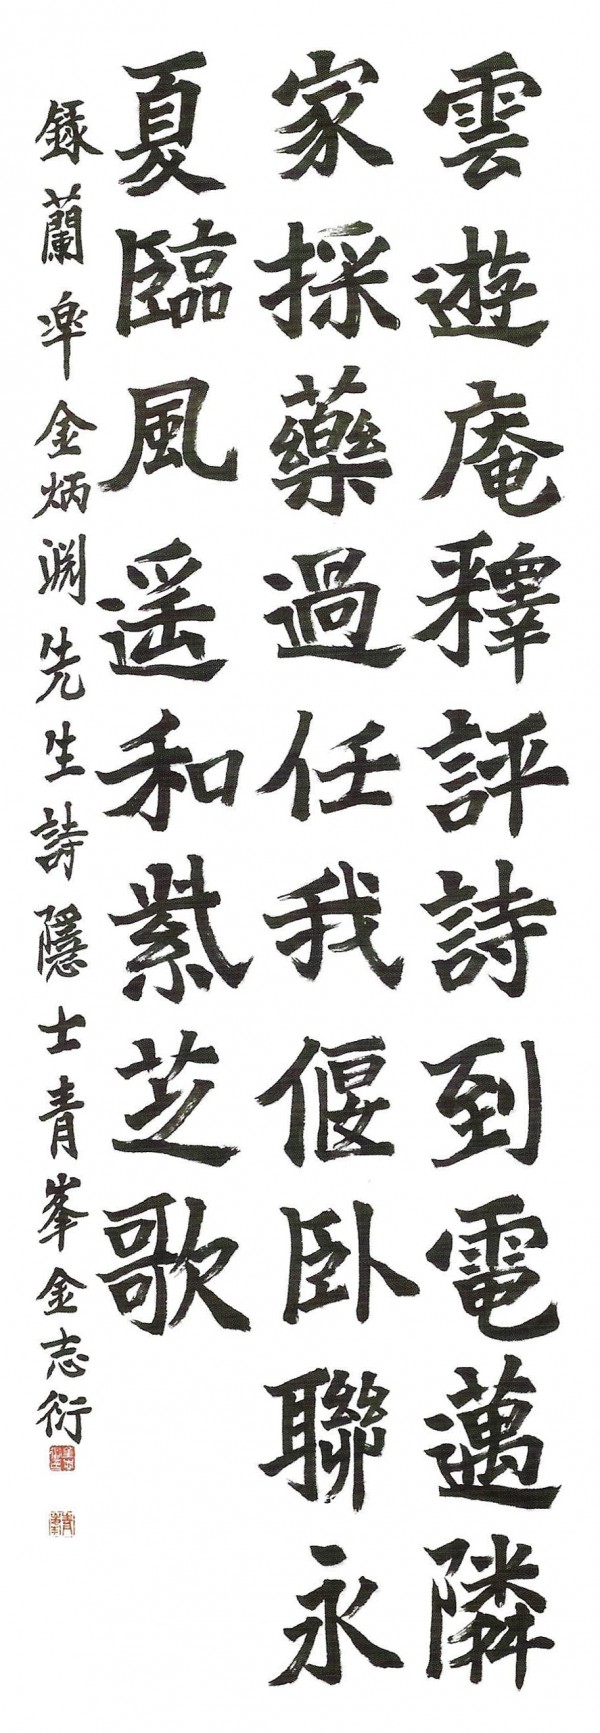 雲遊庵釋評詩到電邁隣
家採藥過任我偃卧聯永
夏臨風遥和紫芝歌
錄蘭皐金炳淵先生詩隱士青峯金志衍